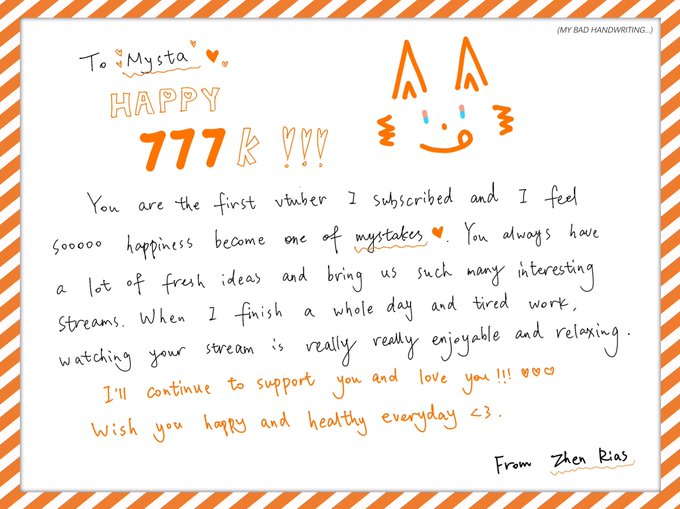 (MY BAD HANDWRITING...)
To Mysta
HAPPY
777k !!!
You are the first vtuber I subscribed and I feel
sooooo happiness become one of mystakes ♥. You always have
a lot of fresh ideas and bring us such many interesting
streams. When I finish a whole day and tired work,
watching your stream is really really enjoyable and relaxing.
I'll continue to support you and love you!!! ♥♥♡
Wish you happy and healthy everyday <3.
From Zhen Rias